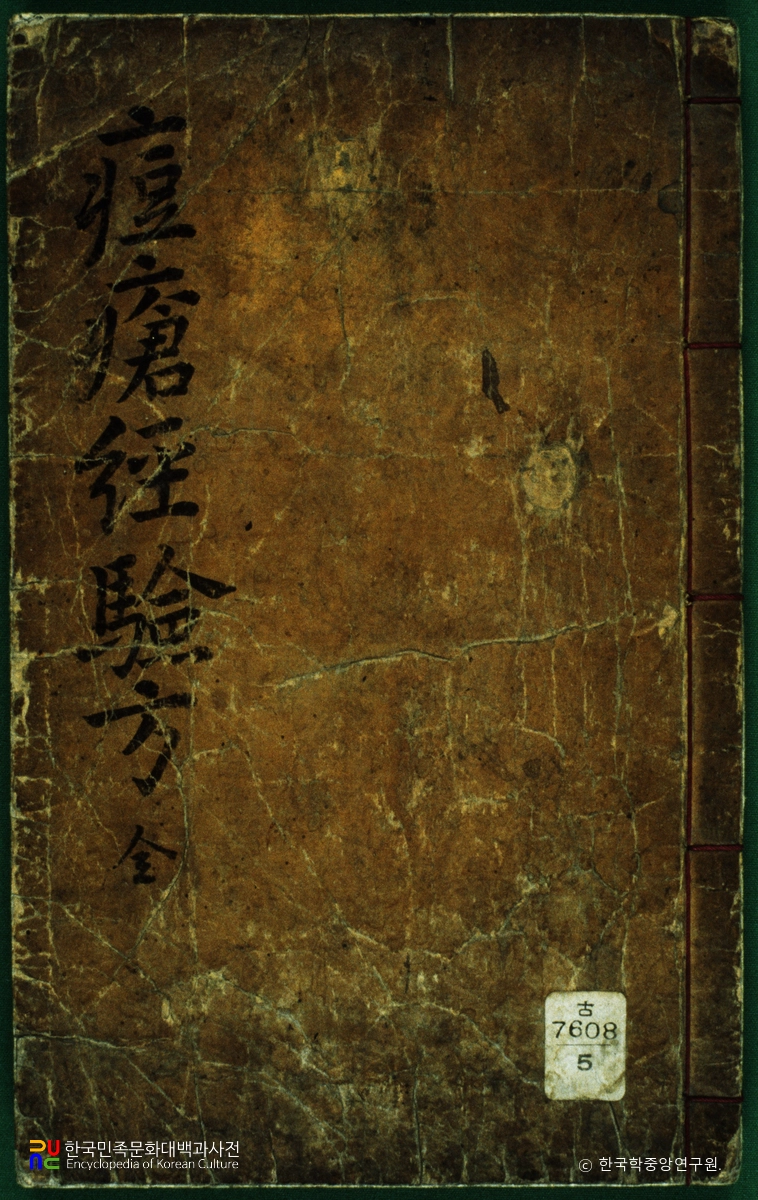 痘瘡經驗方 全
古
7608
5
한국민족문화대백과사전
Encyclopedia of Korean Culture
© 한국학중앙연구원.